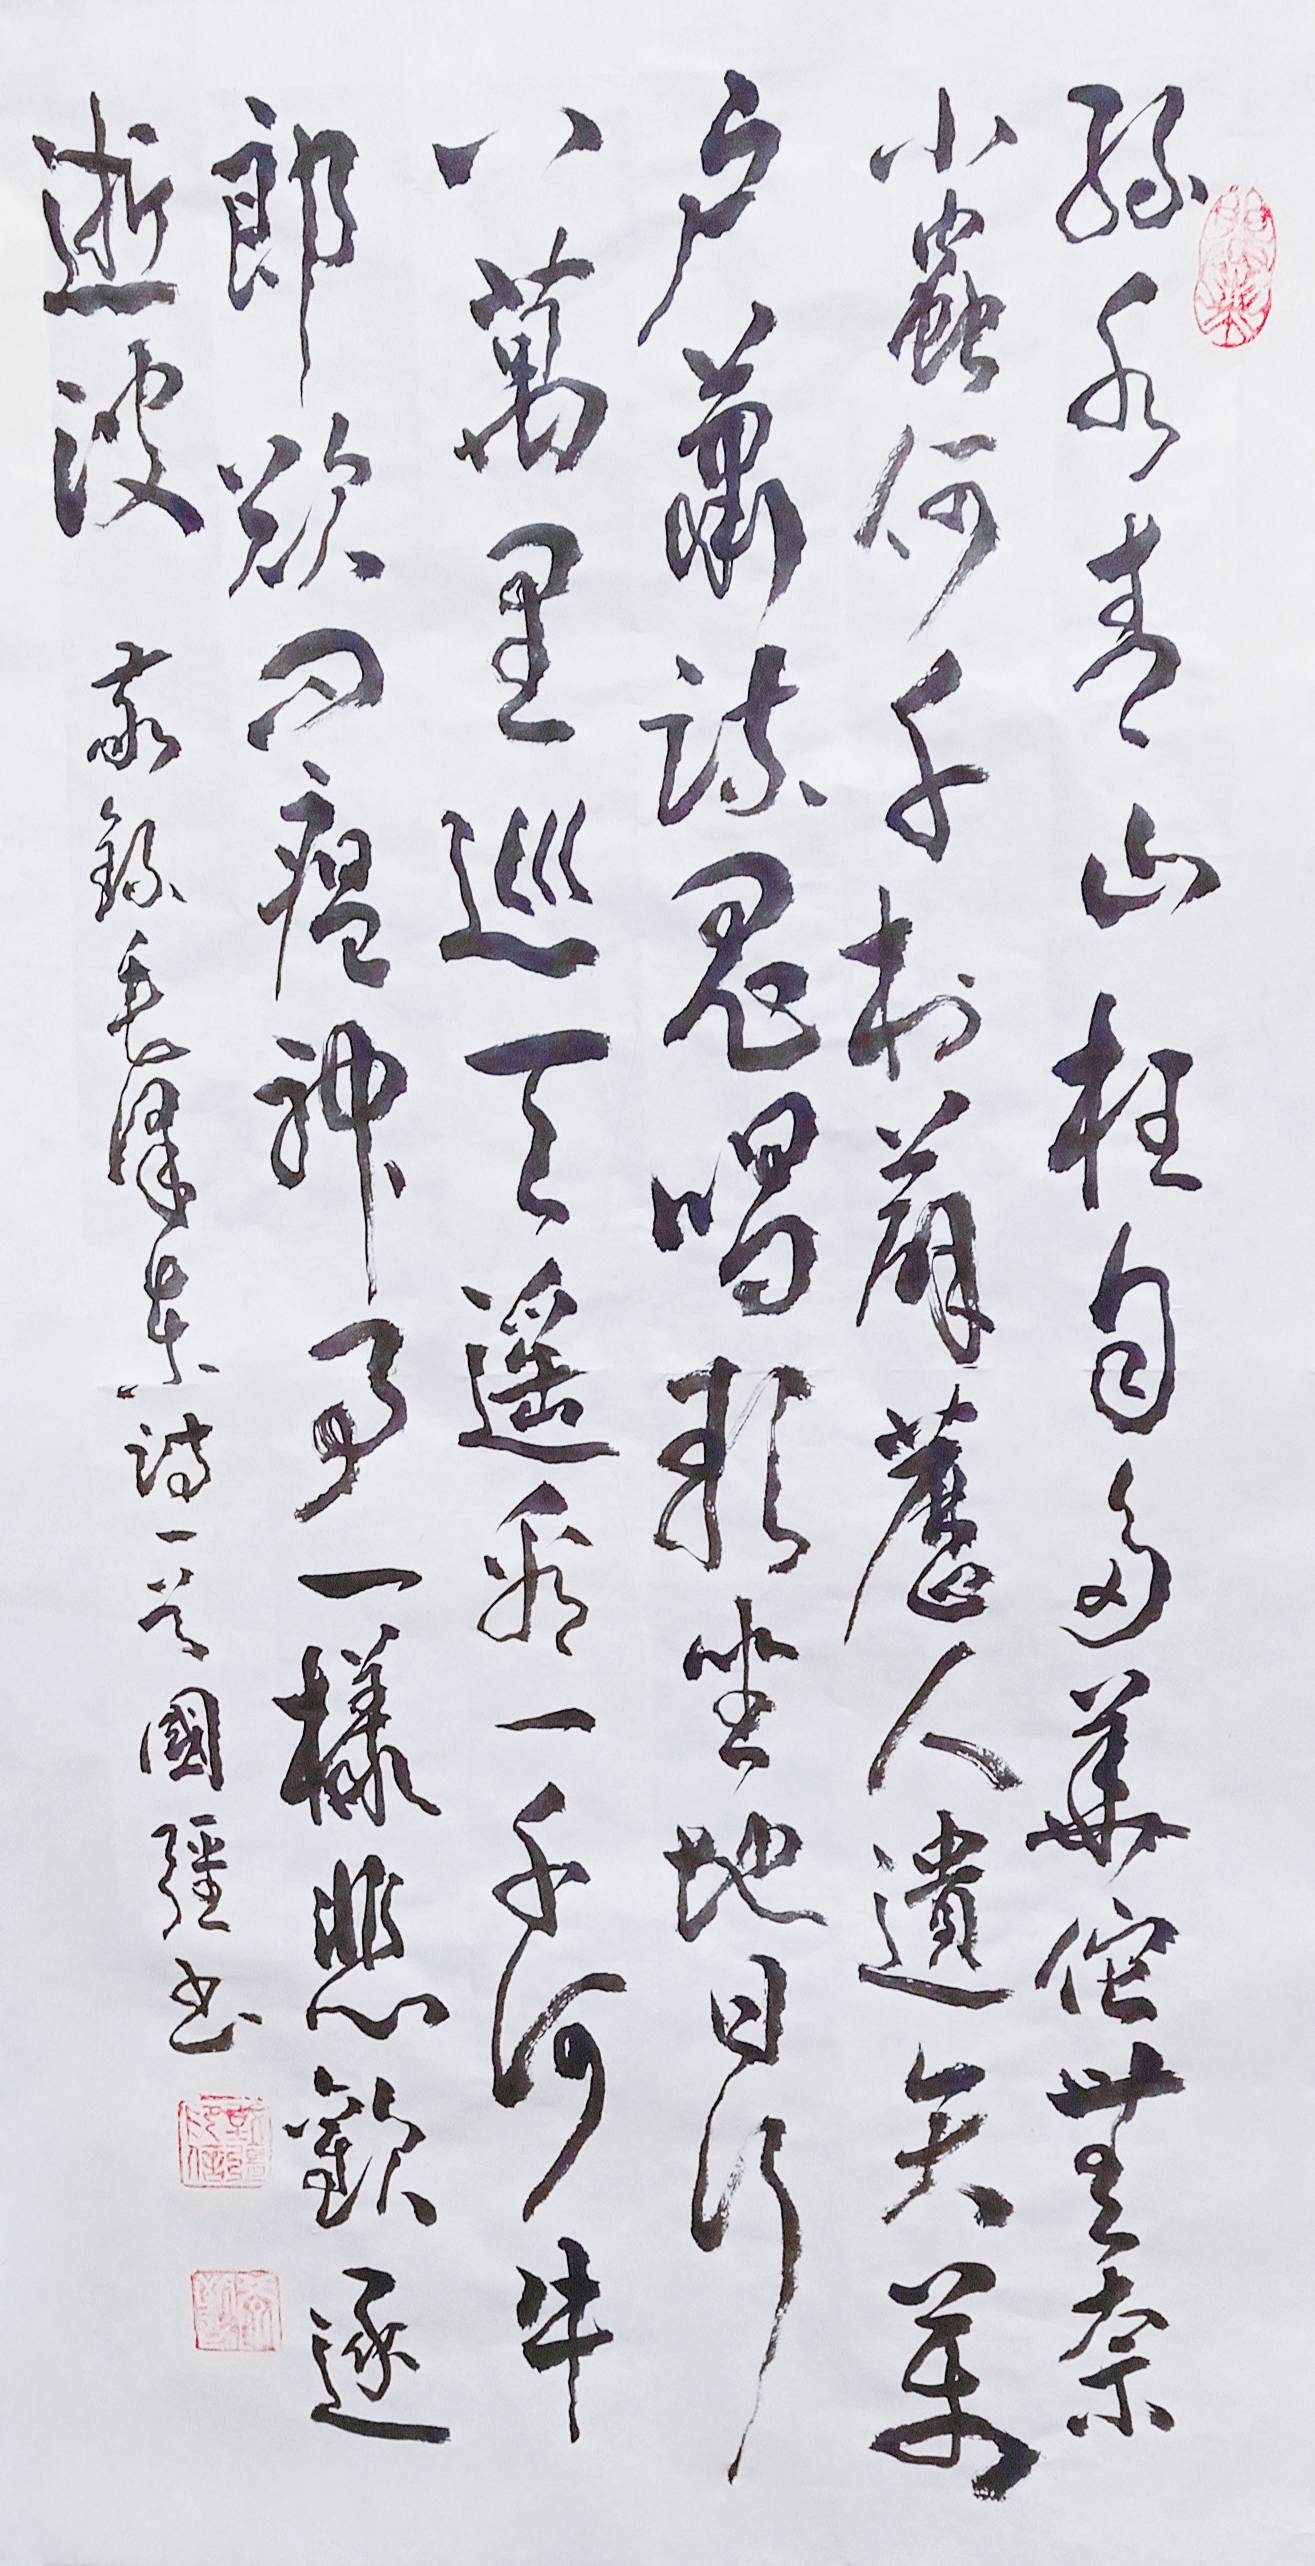 綠水青山枉自多華佗無奈
小蟲何千村薜藶人遺矢萬
戶蕭踈鬼唱歌坐地日行
八萬里巡天遙看一千河牛
郎欲問瘟神事一樣悲歡逐
逝波 敬錄毛澤東詩一首國彊書